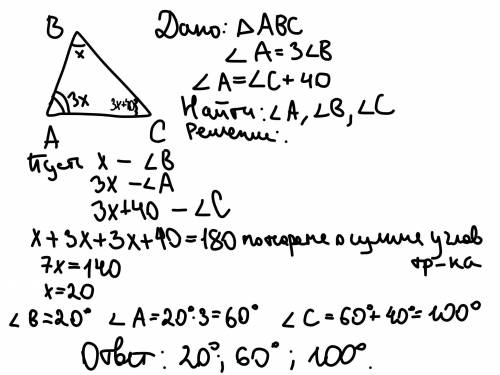 Дано: △ABC
∠A=3∠B
∠A=∠C+40
Найти: ∠A, ∠B, ∠C
Решение:.
B
x
3x
3x+40
A
C
Пусть x – ∠B
3x – ∠A
3x+40 – ∠C
x+3x+3x+40=180 по теореме о сумме углов тр-ка
7x=140
x=20
∠B=20° ∠A=20°·3=60° ∠C=60°+40°=100°
Ответ: 20°; 60°; 100°.